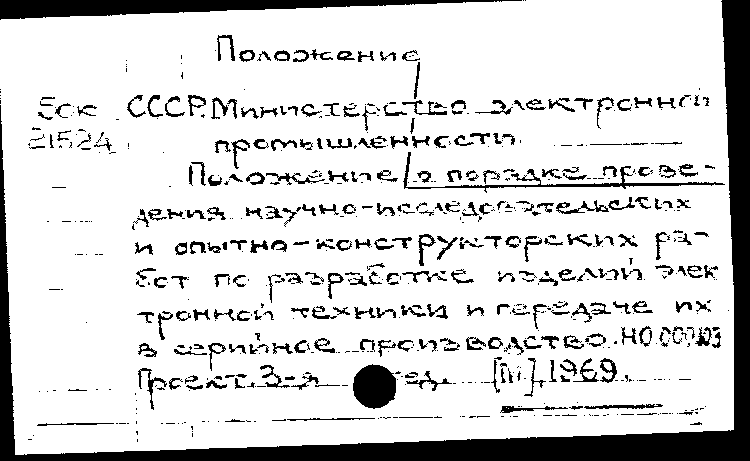 Положение
5ок СССР. Министерство электронной
21524 промышленности.
Положение о порядке прове-
дения научно-исследовательских
и опытно-конструкторских ра-
бот по разработке изделий элек
тронной техники и передаче их
в серийное производство. НО.000.103
Проект. 3-я ред. [М], 1969.